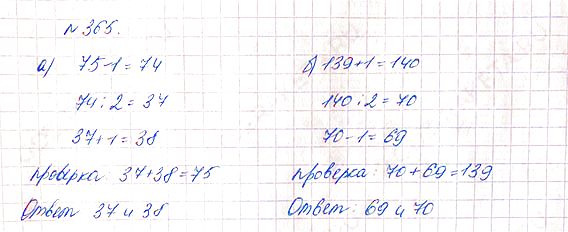 № 365.
а) 75-1=74
74:2=37
37+1=38
Проверка 37+38=75
Ответ 37 и 38
б) 139+1=140
140:2=70
70-1=69
Проверка: 70+69=139
Ответ: 69 и 70